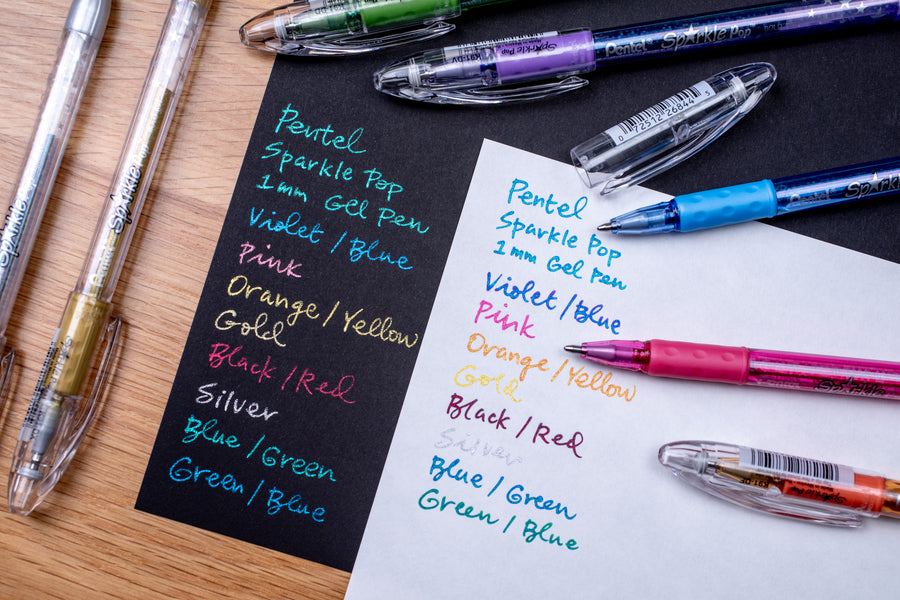 Pentel Sparkle Pop
0 72512 26844 5
Pentel
Sparkle Pop
1 mm Gel Pen
Violet / Blue
Pink
Orange / Yellow
Gold
Black / Red
Silver
Blue / Green
Green / Blue
Pentel
Sparkle Pop
1 mm Gel Pen
Violet / Blue
Pink
Orange / Yellow
Gold
Black / Red
Silver
Blue / Green
Green / Blue
Sparkle
Sparkle
Pentel Sparkle
Sparkle